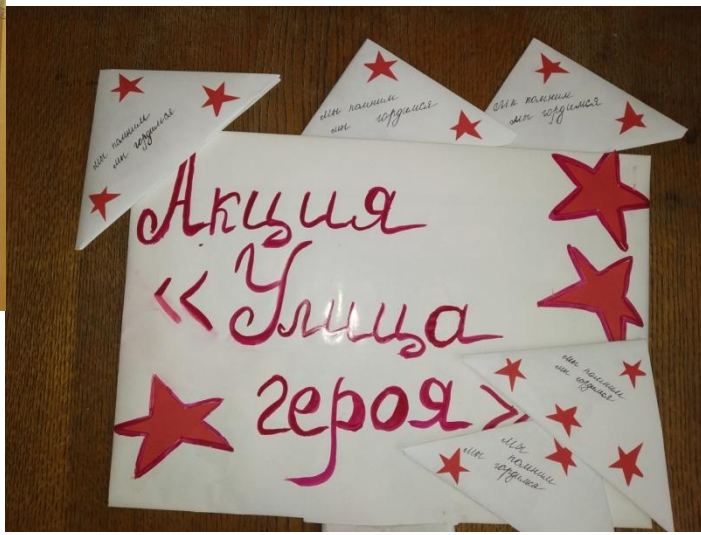 мы помним
мы гордимся
мы помним
мы гордимся
Мы помним
мы гордимся
Акция
«Улица
героя»
мы помним
мы гордимся
Мы
мы помним
гордимся